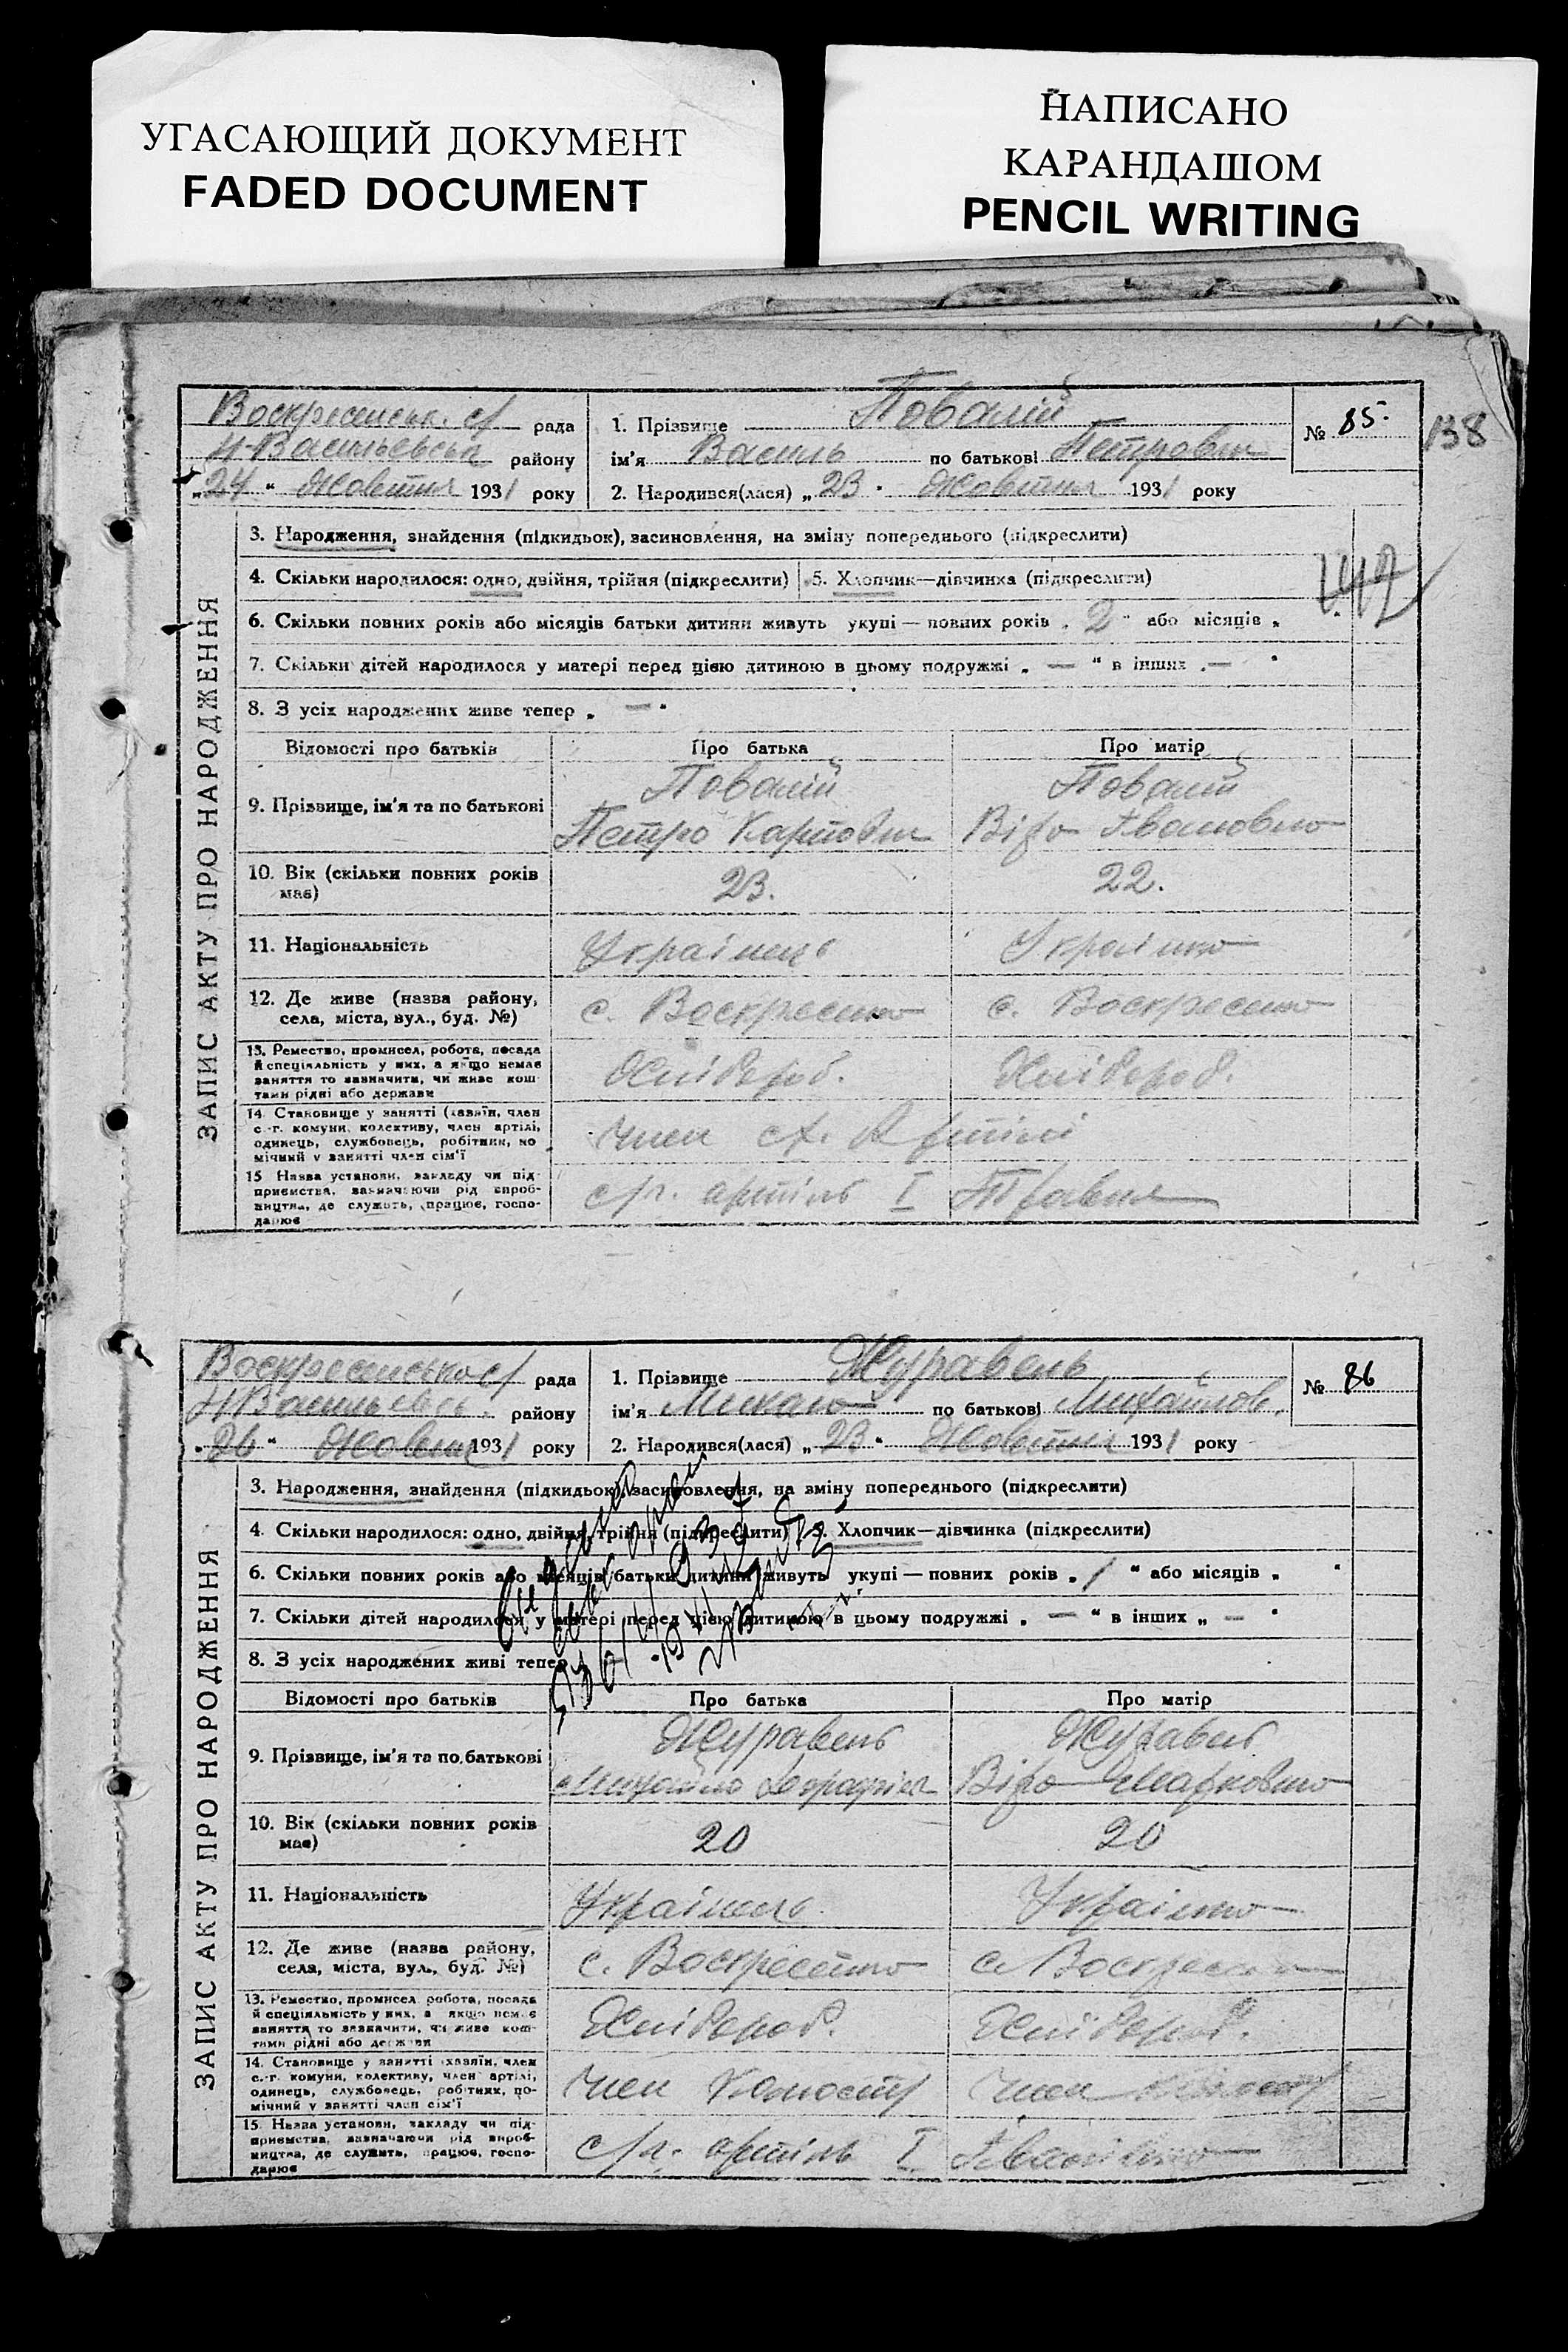 УГАСАЮЩИЙ ДОКУМЕНТ
FADED DOCUMENT
НАПИСАНО
КАРАНДАШОМ
PENCIL WRITING
138
Воскресенськ. с/ рада
Н-Васильевськ району
„24 “ Жовтня 1931 року
1. Прізвище Повалій
ім'я Василь по батькові Петрович
2. Народився(лася) „ 23 “ Жовтня 1931 року
№ 85
142
ЗАПИС АКТУ ПРО НАРОДЖЕННЯ
3. Народження, знайдення (підкидьок), засиновлення, на зміну попереднього (підкреслити)
4. Скільки народилося: одно, двійня, трійня (підкреслити) 5. Хлопчик—дівчинка (підкреслити)
6. Скільки повних років або місяців батьки дитини живуть укупі — повних років „ 2 “ або місяців „ “
7. Скільки дітей народилося у матері перед цією дитиною в цьому подружжі „ — “ в інших „ — “
8. З усіх народжених живе тепер „ — “
Відомості про батьків Про батька Про матір
9. Прізвище, ім'я та по батькові
Повалій Повалій
Петро Карпович Віра Івановна
10. Вік (скільки повних років має) 23. 22.
11. Національність Українець Українка
12. Де живе (назва району, села, міста, вул., буд. №) с. Воскресенка с. Воскресенка
13. Ремество, промисел, робота, посада
й спеціяльність у них, а якщо немає
заняття то зазначити, чи живе кош-
тами рідні або держави
Хліборob. Хлібороб.
14. Становище у занятті (хазяїн, член
с.-г. комуни, колективу, член артілі,
одинець, службовець, робітник, по-
мічний у занятті член сім'ї
член с/г. Артілі
15. Назва установи, закладу чи під-
приємства, зазначаючи рід вироб-
ництва, де служить, працює, госпо-
дарює
с/г. артіль І Травня
Воскресенська с/ рада
Н Васильевск. району
„ 26 “ Жовтня 1931 року
1. Прізвище Журавель
ім'я Микола по батькові Михайлов.
2. Народився(лася) „ 23 “ Жовтня 1931 року
№ 86
ЗАПИС АКТУ ПРО НАРОДЖЕННЯ
3. Народження, знайдення (підкидьок), засиновлення, на зміну попереднього (підкреслити)
4. Скільки народилося: одно, двійня, трійня (підкреслити) 5. Хлопчик—дівчинка (підкреслити)
6. Скільки повних років або місяців батьки дитини живуть укупі — повних років „ 1 “ або місяців „ “
7. Скільки дітей народилося у матері перед цією дитиною в цьому подружжі „ — “ в інших „ — “
8. З усіх народжених живі тепер
Відомості про батьків Про батька Про матір
9. Прізвище, ім'я та по батькові
Журавель Журавель
Михайло Віра Марковна
10. Вік (скільки повних років має) 20 20
11. Національність Українець Українка
12. Де живе (назва району, села, міста, вул., буд. №) с. Воскресенка с. Воскресенка
13. Ремество, промисел, робота, посада
й спеціяльність у них, а якщо немає
заняття то зазначити, чи живе кош-
тами рідні або держави
Хлібороб. Хлібороб.
14. Становище у занятті (хазяїн, член
с.-г. комуни, колективу, член артілі,
одинець, службовець, робітник, по-
мічний у занятті член сім'ї
член член
15. Назва установи, закладу чи під-
приємства, зазначаючи рід вироб-
ництва, де служить, працює, госпо-
дарює
с/г. артіль